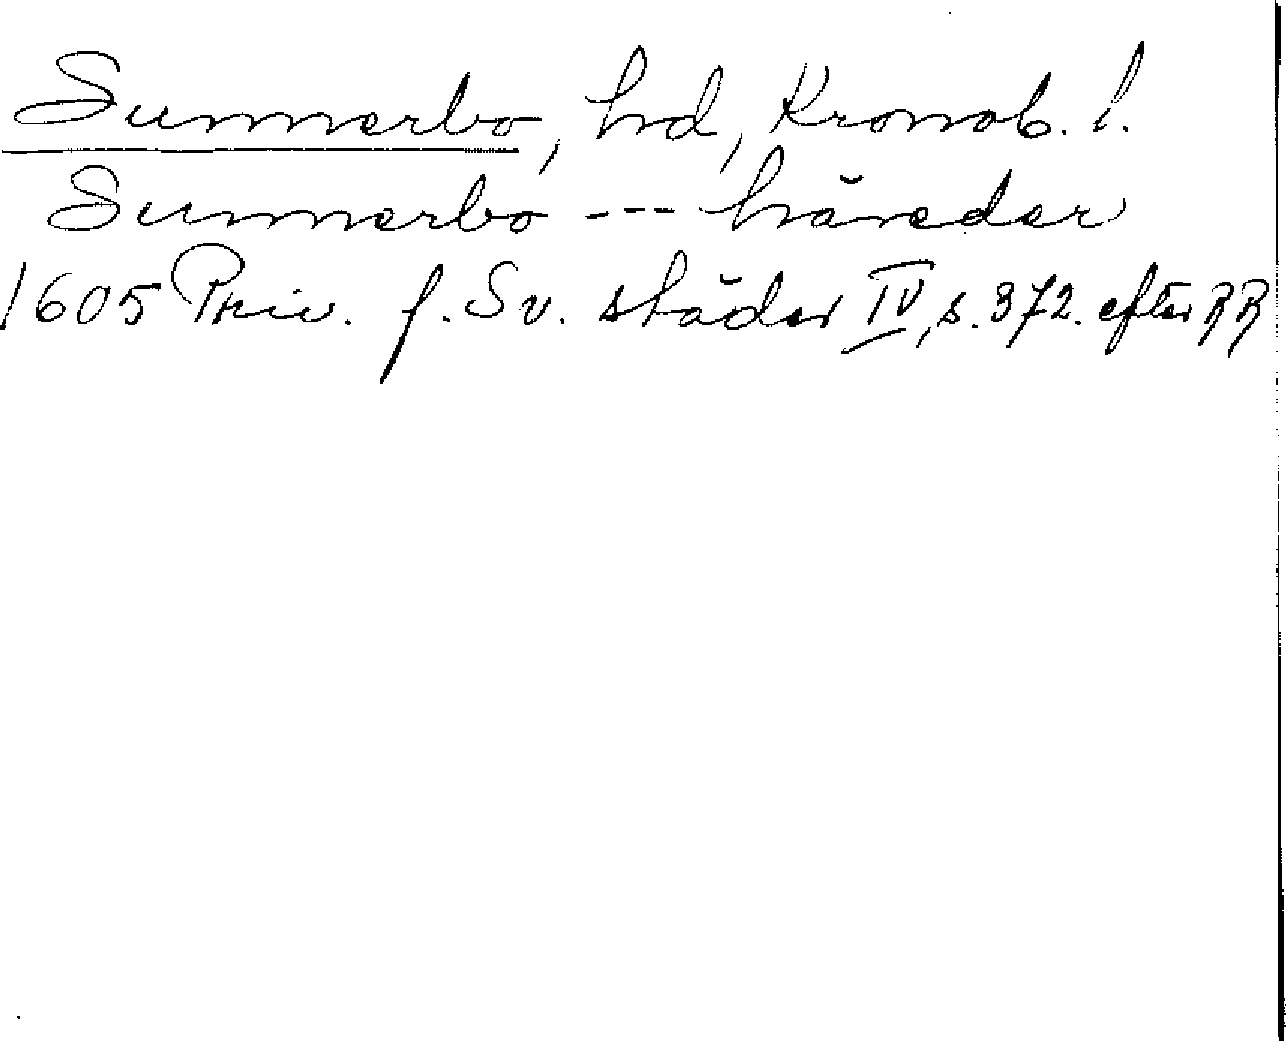 Sunnerbo, hd, Kronob. l.
Sunnerbo --- häreder
1605 Priv. f. Sv. städer IV, s. 372. efter RR